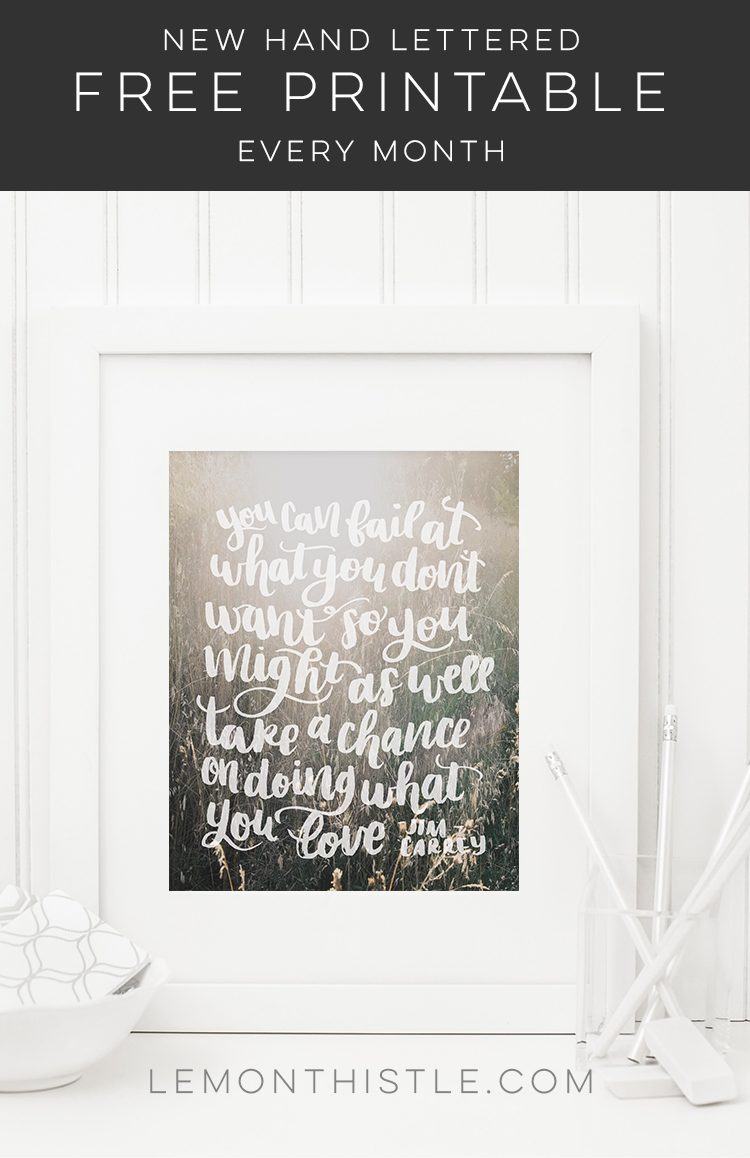 NEW HAND LETTERED
FREE PRINTABLE
EVERY MONTH
you can fail at
what you don't
want so you
might as well
take a chance
on doing what
you love JIM
CARREY
LEMONTHISTLE.COM